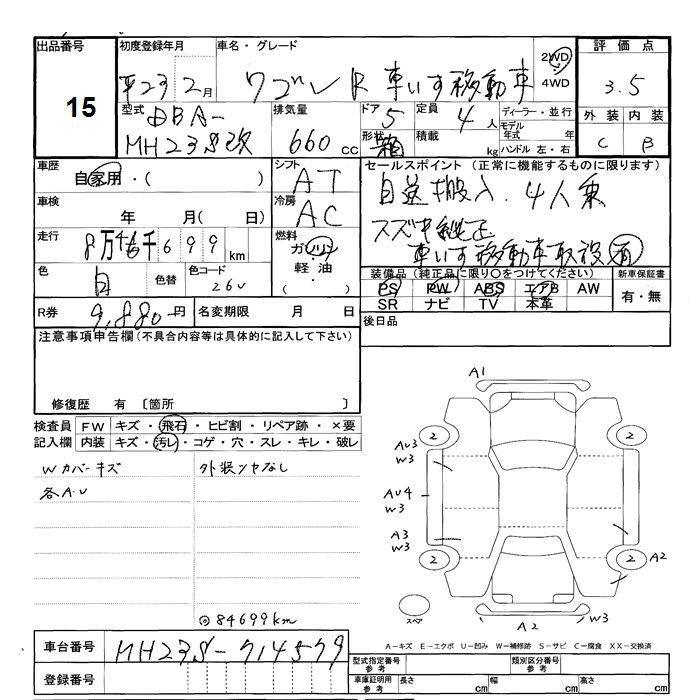 出品番号 初度登録年月 車名・グレード 2WD 4WD 評価点
15 平23 2月 ワゴンR 車いす移動車 3.5
型式 DBA- MH23S改 排気量 660cc ドア 5 形状 箱 定員 4人 積載 kg ディーラー・並行 モデル年式 年 ハンドル 左・右 外装 内装
C B
車歴 自家用・( ) シフト AT セールスポイント (正常に機能するものに限ります)
自送搬入. 4人乗
車検 年 月( 日) 冷房 AC
スズキ純正
走行 8万4千699km 燃料 ガソリン 軽油・ ( )
車いす移動車
色 白 色替 色コード 26U
装備品 (純正品に限り〇をつけてください) 新車保証書
PS PW ABS エアB AW 有・無
SR ナビ TV 本革
R券 9,880円 名変期限 月 日 後日品
注意事項申告欄 (不具合内容等は具体的に記入して下さい)
修復歴 有 〔箇所 〕
検査員 FW キズ・飛石・ヒビ割・リペア跡・×要
記入欄 内装 キズ・汚レ・コゲ・穴・スレ・キレ・破レ
Wカバーキズ 外装ツヤなし
各A.U
◎84699km
A1
2 2
AU3
W3
AU4
W3
A3
W3
2 2 A2
スペア
A2 W3
A−キズ E−エクボ U−凹み W−補修跡 S−サビ C−腐食 XX−交換済
車台番号 MH23S-714579
登録番号
型式指定番号 参考 類別区分番号 参考
車庫証明用 参考 長さ cm 幅 cm 高さ cm